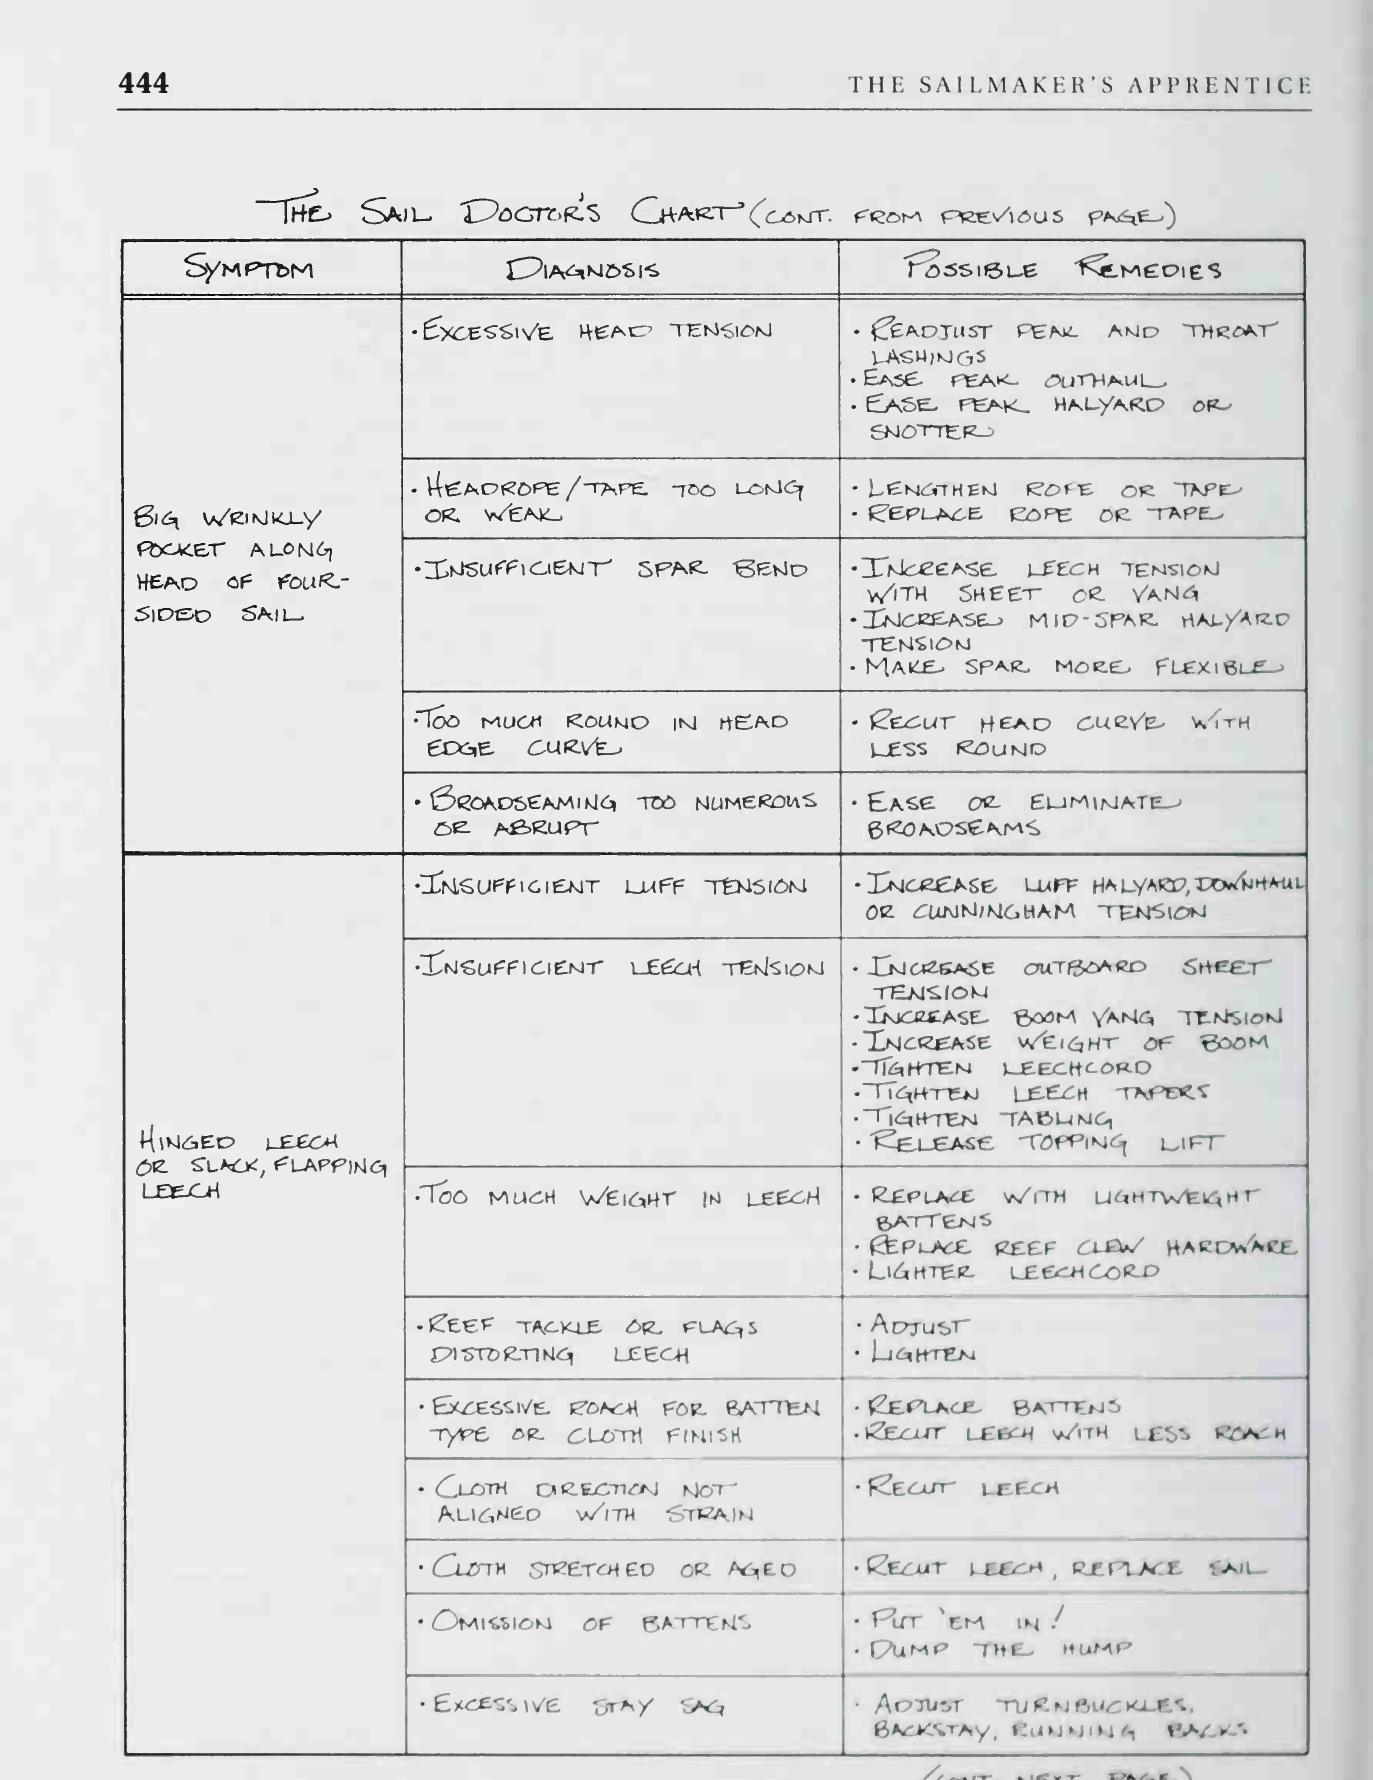 444
THE SAILMAKER'S APPRENTICE
THE SAIL DOCTOR'S CHART (CONT. FROM PREVIOUS PAGE)
SYMPTOM
DIAGNOSIS
POSSIBLE REMEDIES
BIG WRINKLY
POCKET ALONG
HEAD OF FOUR-
SIDED SAIL
• EXCESSIVE HEAD TENSION
• READJUST PEAK AND THROAT
LASHINGS
• EASE PEAK OUTHAUL
• EASE PEAK HALYARD OR
SNOTTER
• HEADROPE/TAPE TOO LONG
OR WEAK
• LENGTHEN ROPE OR TAPE
• REPLACE ROPE OR TAPE
• INSUFFICIENT SPAR BEND
• INCREASE LEECH TENSION
WITH SHEET OR VANG
• INCREASE MID-SPAR HALYARD
TENSION
• MAKE SPAR MORE FLEXIBLE
• TOO MUCH ROUND IN HEAD
EDGE CURVE
• RECUT HEAD CURVE WITH
LESS ROUND
• BROADSEAMING TOO NUMEROUS
OR ABRUPT
• EASE OR ELIMINATE
BROADSEAMS
HINGED LEECH
OR SLACK, FLAPPING
LEECH
• INSUFFICIENT LUFF TENSION
• INCREASE LUFF HALYARD, DOWNHAUL
OR CUNNINGHAM TENSION
• INSUFFICIENT LEECH TENSION
• INCREASE OUTBOARD SHEET
TENSION
• INCREASE BOOM VANG TENSION
• INCREASE WEIGHT OF BOOM
• TIGHTEN LEECHCORD
• TIGHTEN LEECH TAPERS
• TIGHTEN TABLING
• RELEASE TOPPING LIFT
• TOO MUCH WEIGHT IN LEECH
• REPLACE WITH LIGHTWEIGHT
BATTENS
• REPLACE REEF CLEW HARDWARE
• LIGHTER LEECHCORD
• REEF TACKLE OR FLAGS
DISTORTING LEECH
• ADJUST
• LIGHTEN
• EXCESSIVE ROACH FOR BATTEN
TYPE OR CLOTH FINISH
• REPLACE BATTENS
• RECUT LEECH WITH LESS ROACH
• CLOTH DIRECTION NOT
ALIGNED WITH STRAIN
• RECUT LEECH
• CLOTH STRETCHED OR AGED
• RECUT LEECH, REPLACE SAIL
• OMISSION OF BATTENS
• PUT 'EM IN!
• DUMP THE HUMP
• EXCESSIVE STAY SAG
• ADJUST TURNBUCKLES,
BACKSTAY, RUNNING BACKS
(CONT. NEXT PAGE)